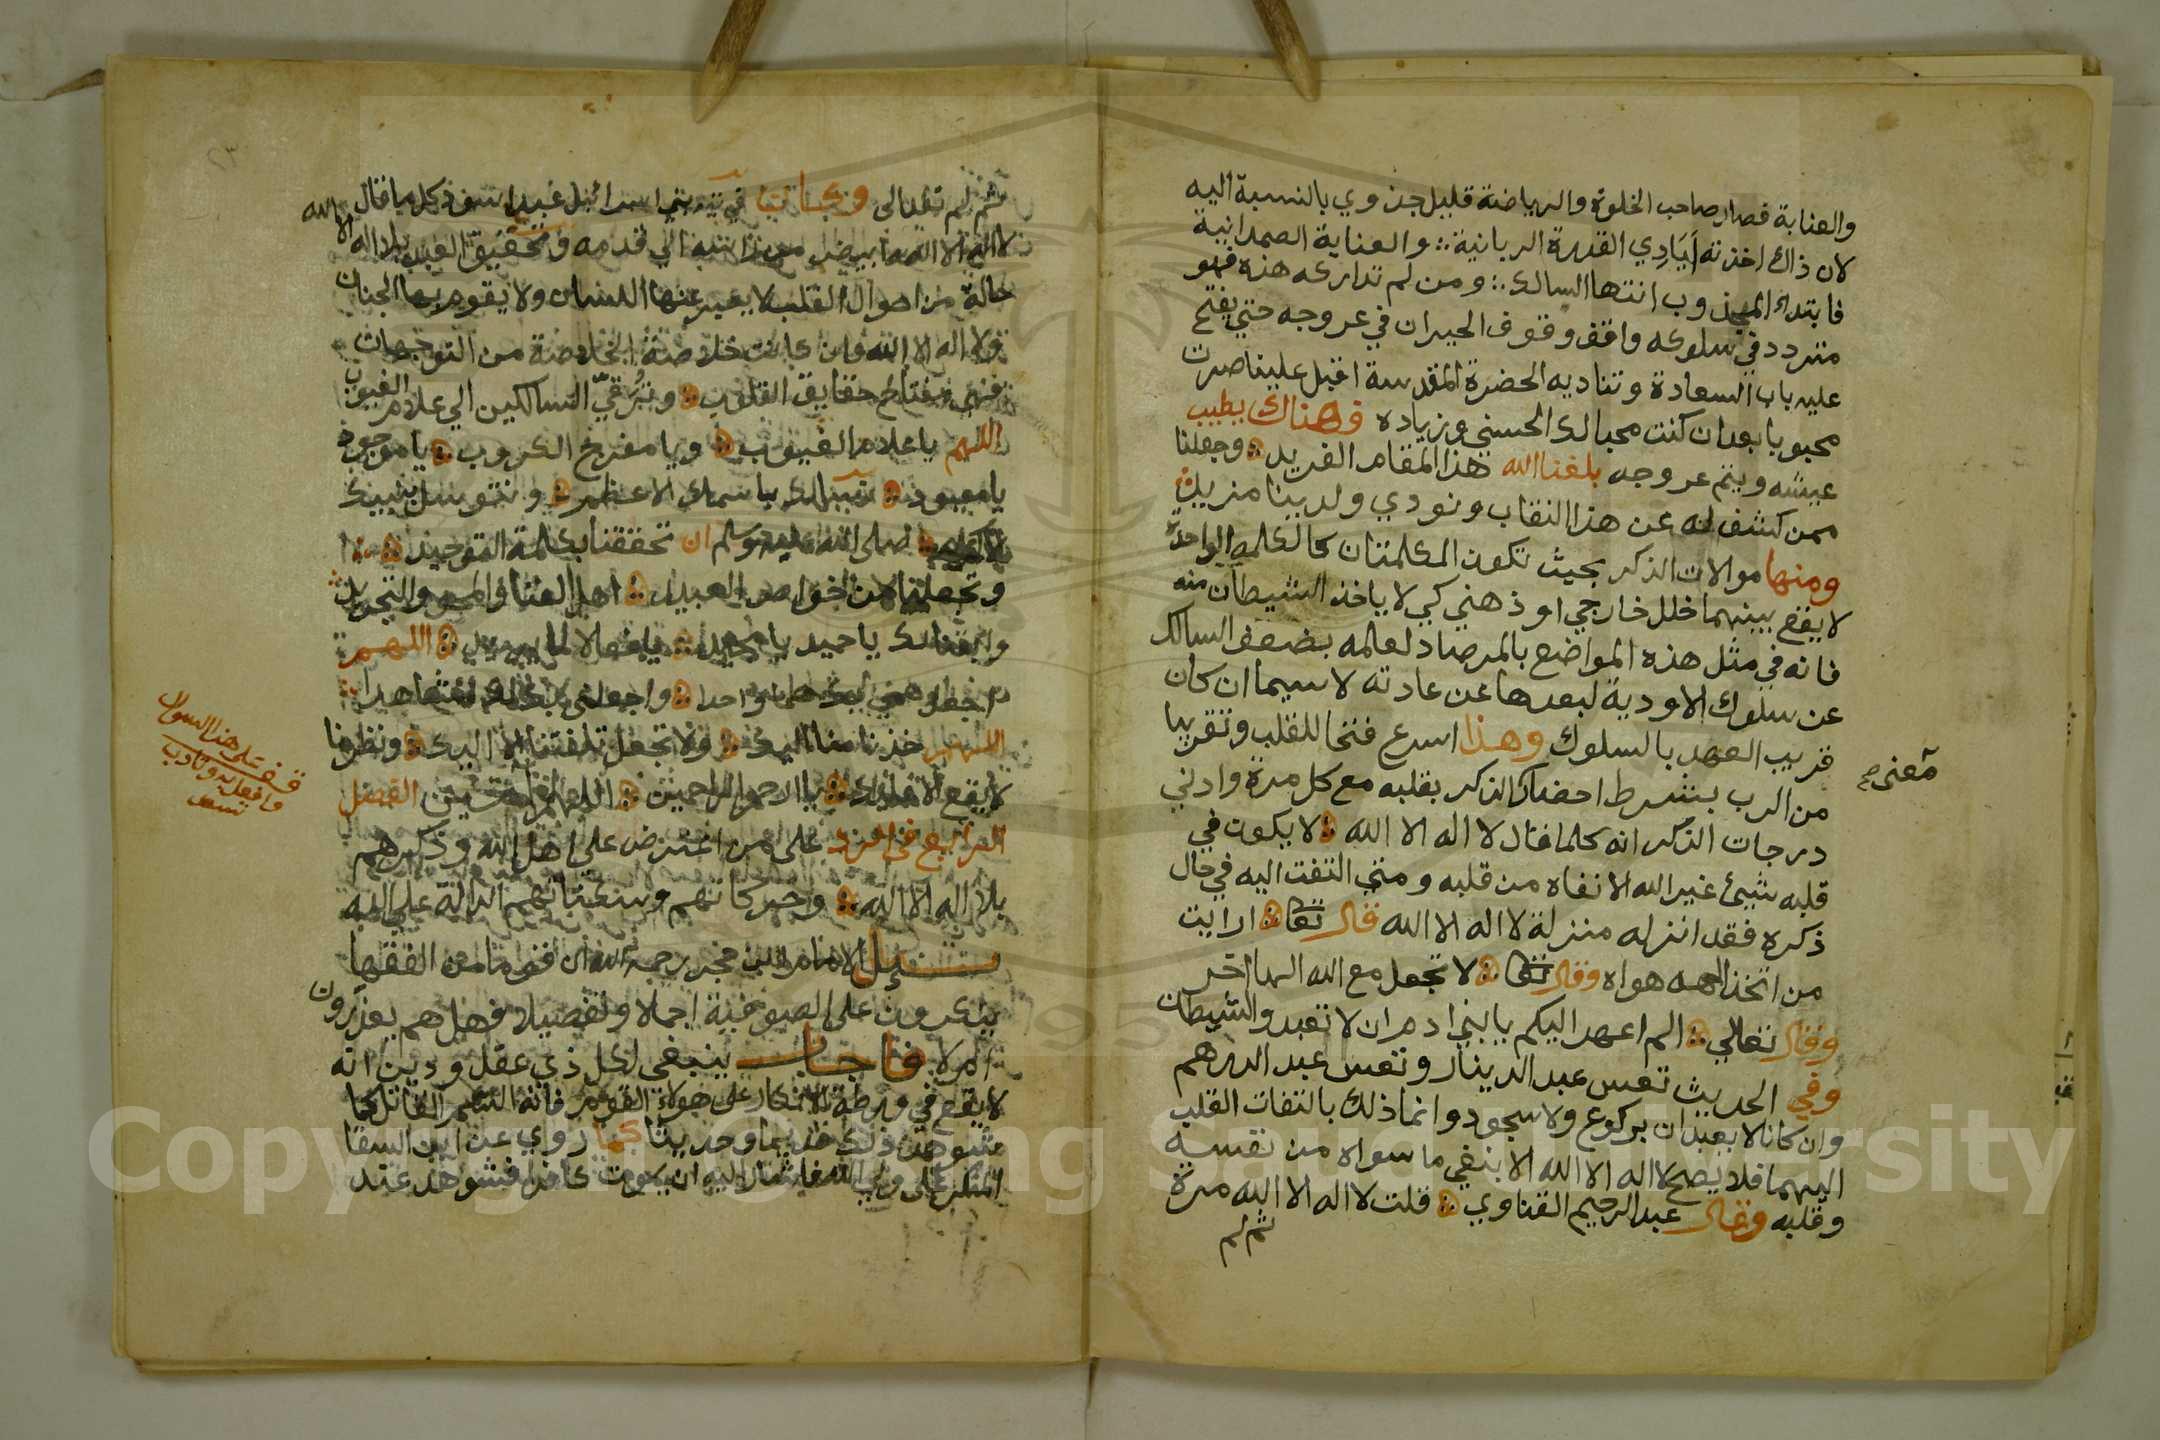 والعناية فصار صاحب الخلوة والرياضة قليل جدوي بالنسبة اليه
لان ذاك اخذته ايَادِي القدرة الربانية والعناية الصمدانية
فابتداء المجذوب انتها السالك ومن لم تداركه هذه فهو
متردد في سلوكه واقف وقوف الحيران في عروجه حتي يفتح
عليه باب السعادة وتناديه الحضرة المقدسة اقبل علينا صرت
محبوبا بعد ان كنت محبا لك الحسني وزياده فهناك يطيب
عيشه ويتم عروجه بلغنا الله هذا المقام الفريد وجعلنا
ممن كشف له عن هذا النقاب ونودي ولدينا مزيد
ومنها موالات الذكر بحيث تكون الكلمتان كالكلمه الواحدة
لا يقع بينهما خلل خارجي او ذهني كي لا ياخذ الشيطان منه
فانه في مثل هذه المواضع بالمرصاد لعلمه بضعف السالك
عن سلوك الاودية لبعدها عن عادته لا سيما ان كان
قريب العهد بالسلوك وهذا اسرع فتحا للقلب وتقريبا
من الرب بشرط احضار الذكر بقلبه مع كل مرة وادني
معنى صح
درجات الذكر انه كلما قال لا اله الا الله لا يكون في
قلبه شيئ غير الله الا نفاه من قلبه ومتي التفت اليه في حال
ذكره فقد انزله منزلة لا اله الا الله قال تعا ارايت
من اتخذ الهه هواه وقال تعا لا تجعل مع الله الها اخر
وقال تعالي الم اعهد اليكم يا بني ادم ان لا تعبدوا الشيطان
وفي الحديث تعس عبد الدينار وتعس عبد الدرهم
وان كانا لا يعبدان بركوع ولا سجود وانما ذلك بالتفات القلب
اليهما فلا يصح لا اله الا الله الا بنفي ما سواه من نفسه
وقلبه وقال عبد الرحيم القناوي قلت لا اله الا الله مرة
ثم لم
ثم لم تعد الى وكان في بني اسرائيل عبد اسود كلما قال
لا اله الا الله ابيض من راسه الي قدمه وتحقيق العبد بلا اله الا الله
حالة من احوال القلب لا يعبر عنها اللسان ولا يقوم بها الجنان
ولا اله الا الله وان كانت خلاصة الخلاصة من التوجهات
فهي مفتاح حقايق القلوب وترقي السالكين الي علام الغيوب
اللهم يا علام الغيوب ويا مفرج الكروب يا موجود
يا معبود نسالك باسمك الاعظم ونتوسل بنبيك
صلى الله عليه وسلم ان تحققنا بكلمة التوحيد
وتجعلنا من خواص العبيد اهل الفنا والمحو والتجريد
يا حميد يا مجيد يا فعالا لما يريد اللهم
اجعل همي بك هما واحدا واجعلني
اللهم خذنا منا اليك ولا تجعل تلفتنا الا اليك ونظرنا
لا يقع الا عليك يا ارحم الراحمين الفصل
الرابع في الرد على من اعترض علي اهل الله وذكرهم
بلا اله الا الله وحركاتهم الدالة علي الله
سئل الامام ابن حجر رحمه الله ان قوما من الفقها
ينكرون على الصوفية اجمالا وتفصيلا فهل هم يعزرون
ام لا فاجاب ينبغي لكل ذي عقل ودين انه
لا يقع في ورطة الانكار على هولاء القوم فانه السم القاتل كما
شوهد ذلك قديما وحديثا كما روي عن ابن السقا
المنكر على ولي الله فاشار اليه ان يموت كافرا فشوهد عند
قف على هذا السوال
وافعل به وتادب
تسعد